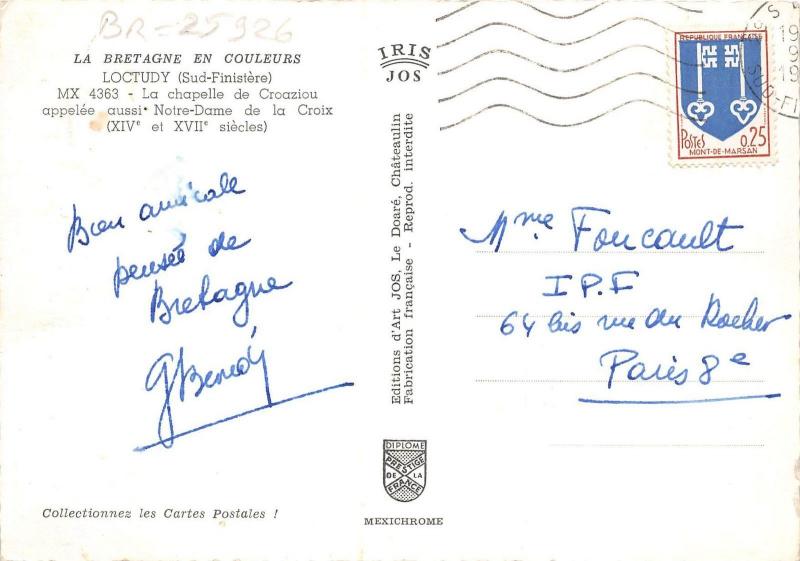 BR-25926
LA BRETAGNE EN COULEURS
LOCTUDY (Sud-Finistère)
MX 4363 - La chapelle de Croaziou
appelée aussi Notre-Dame de la Croix
(XIVe et XVIIe siècles)
Bien amicale
pensée de
Bretagne
Collectionnez les Cartes Postales !
IRIS
JOS
Editions d'Art JOS, Le Doaré, Châteaulin
Fabrication française - Reprod. interdite
DIPLOME
PRESTIGE
DE LA
FRANCE
MEXICHROME
REPUBLIQUE FRANÇAISE
POSTES 0,25
MONT-DE-MARSAN
SUD-FI
Mme Foucault
I.P.F
64 bis rue du Rocher
Paris 8e